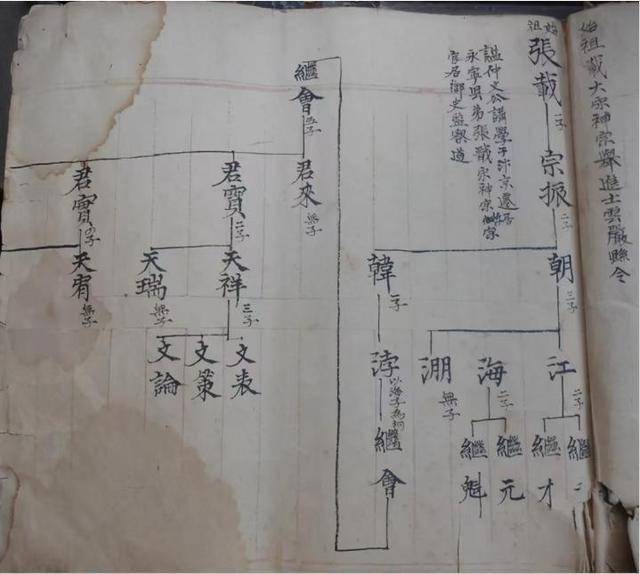 始祖載大宗神宗舉進士雲巖縣令
始祖
張載 一子
謚仲文公講學于汴京還居
永寧與弟張戩宗神宗
官居御史監察道
宗振 二子
朝 三子
韓 一子
江 二子
海 二子
淜 無子
浡 以海子為嗣
繼
繼才
繼元
繼魁
繼會
繼會 三子
君來 無子
君寶 二子
君實 子
天祥 三子
天瑞 無子
天有 無子
文表
文策
文論